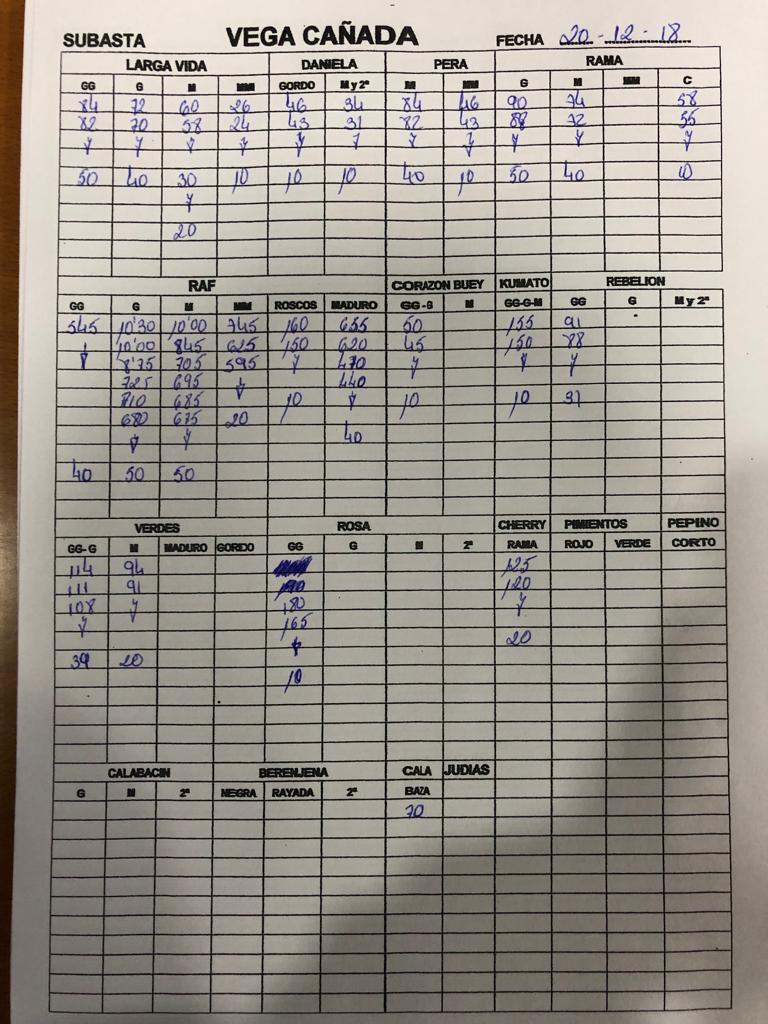 SUBASTA VEGA CAÑADA FECHA 20-12-18
LARGA VIDA DANIELA PERA RAMA
GG G M MM GORDO M y 2ª M MM G M MM C
84 72 60 26 46 34 84 46 90 74 58
82 70 58 24 43 31 82 43 88 72 55
50 40 30 10 10 10 40 10 50 40 10
20
RAF CORAZON BUEY KUMATO REBELION
GG G M MM ROSCOS MADURO GG-G M GG-G-M GG G M y 2ª
545 10'30 10'00 745 160 655 50 155 91
10'00 845 625 150 620 45 150 88
8'75 705 595 470
725 695 440
710 685 10 10 10 31
680 675 20
40
40 50 50
VERDES ROSA CHERRY PIMIENTOS PEPINO
GG-G M MADURO GORDO GG G M 2ª RAMA ROJO VERDE CORTO
114 94 125
111 91 190 120
108 180
165
20
39 20
10
CALABACIN BERENJENA CALA JUDIAS
G M 2ª NEGRA RAYADA 2ª BAZA
70